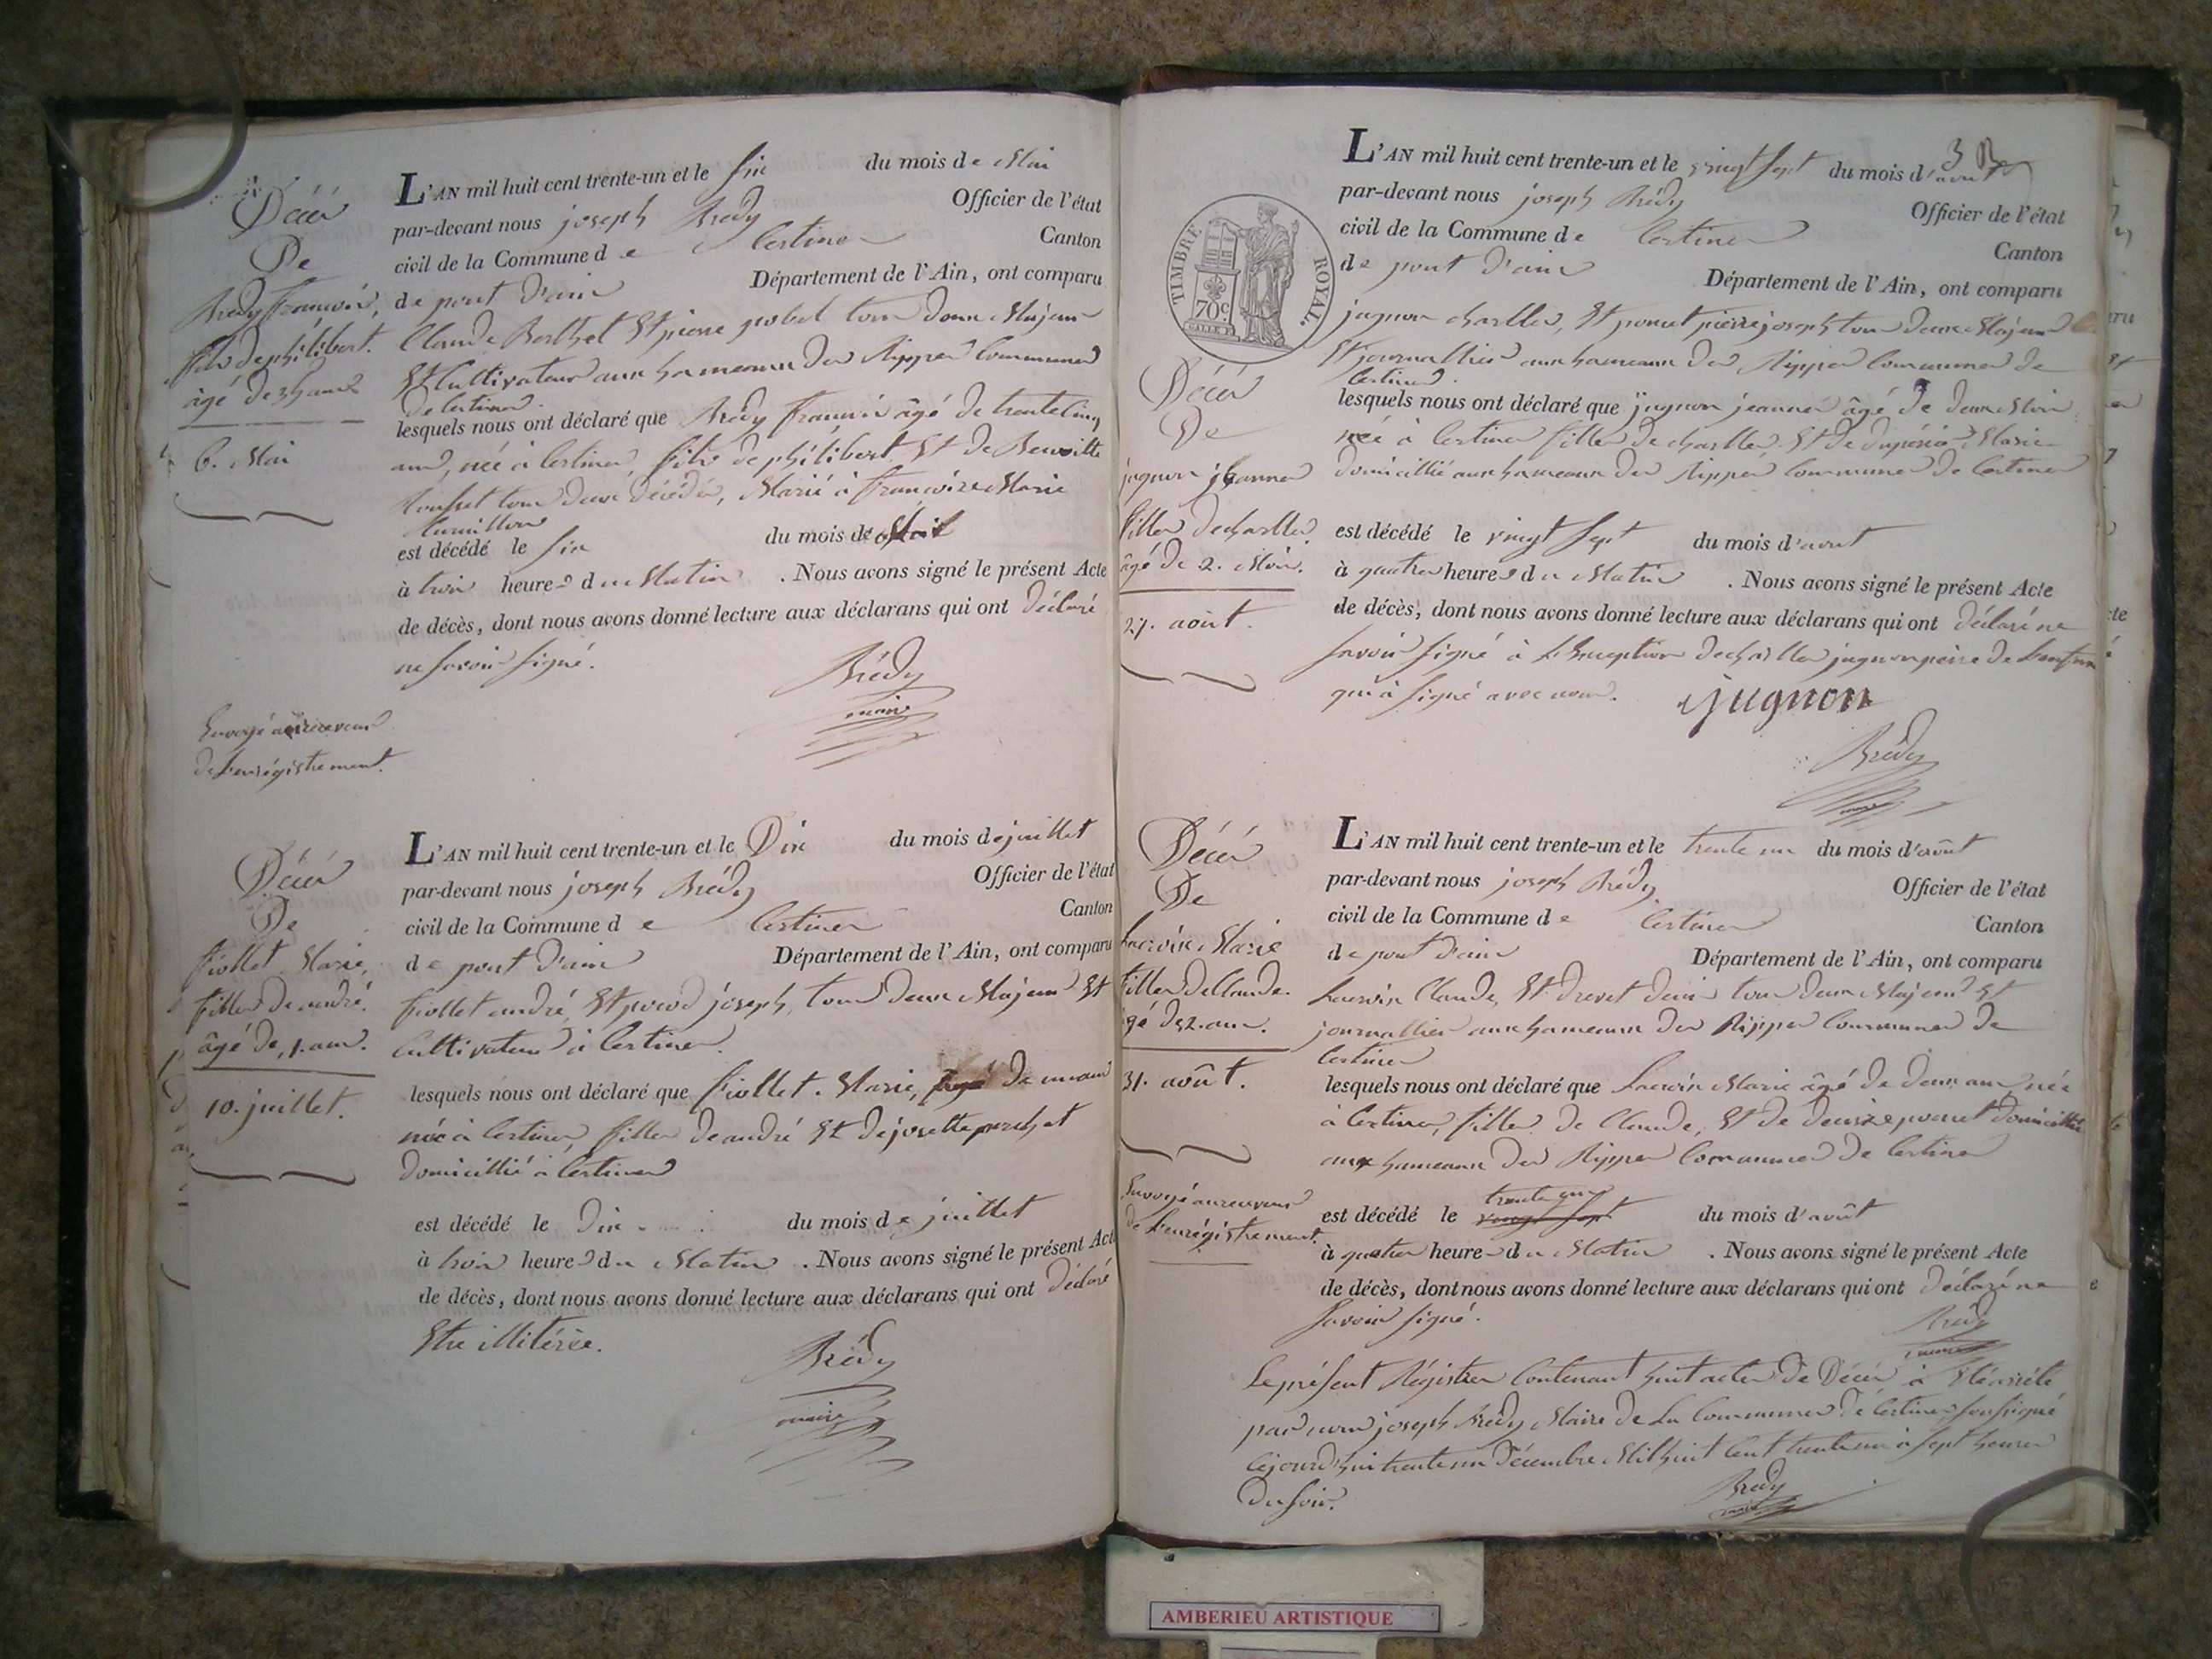 Décès
De
Brédy françois,
fils de philibert.
âgé de 35 ans
6. Mai
Envoyé au receveur
de l'enrégistrement.
L'AN mil huit cent trente-un et le six du mois de Mai
par-devant nous joseph Brédy Officier de l'état
civil de la Commune de Certines Canton
de pont d'ain Département de l'Ain, ont comparu
Claude Berthet Et pierre gobet tous deux Majeurs
Et Cultivateurs aux hameaux des Rippes Commune
de Certines.
lesquels nous ont déclaré que Brédy françois âgé de trente cinq
ans, née à Certines, fils de philibert, Et de Benoitte
tous deux décédés, Marié à françoise Marie
est décédé le six du mois de Mai
à trois heures du Matin . Nous avons signé le présent Acte
de décès, dont nous avons donné lecture aux déclarans qui ont déclaré
ne savoir signé.
Brédy
maire
Décès
De
fiollet Marie,
fille de andré.
âgé de, 1. ans.
10. juillet.
L'AN mil huit cent trente-un et le Dix du mois de juillet
par-devant nous joseph Brédy Officier de l'état
civil de la Commune de Certines Canton
de pont d'ain Département de l'Ain, ont comparu
fiollet andré, Et joseph, tous deux Majeurs Et
Cultivateurs à Certines.
lesquels nous ont déclaré que fiollet. Marie, âgé de un ans
née à Certines, fille de andré Et de josette
domicillié à Certines
est décédé le Dix du mois de juillet
à trois heures du Matin . Nous avons signé le présent Acte
de décès, dont nous avons donné lecture aux déclarans qui ont déclaré
Etre illitérée.
Brédy
maire
TIMBRE ROYAL.
70c
Décès
De
jugnon jeanne
fille de charlles.
âgé de 2. Mois.
27. août.
3
L'AN mil huit cent trente-un et le vingt sept du mois d'aout
par-devant nous joseph Brédy Officier de l'état
civil de la Commune de Certines Canton
de pont d'ain Département de l'Ain, ont comparu
jugnon charlles, Et poncet pierre joseph tous deux Majeurs
Et journallier aux hameaux des Rippes Commune de
Certines.
lesquels nous ont déclaré que jugnon jeanne âgé de deux Mois
née à Certines fille de charlles, Et de Marie
domicillié aux hameaux des Rippes Commune de Certines
est décédé le vingt sept du mois d'aout
à quatre heures du Matin . Nous avons signé le présent Acte
de décès, dont nous avons donné lecture aux déclarans qui ont déclaré ne
savoir signé à L'Exception de charlles jugnon peire de L'enfant
qui à signé avec nous. jugnon
Brédy
maire
Décès
De
Lacroix Marie
fille de Claude.
âgé de 2. ans.
31. août.
Envoyé au receveur
de L'enrégistrement.
L'AN mil huit cent trente-un et le trente un du mois d'août
par-devant nous joseph Brédy Officier de l'état
civil de la Commune de Certines Canton
de pont d'ain Département de l'Ain, ont comparu
Lacroix Claude, Et drevet denis tous deux Majeurs Et
journallier aux hameaux des Rippes Commune de
Certines
lesquels nous ont déclaré que Lacroix Marie âgé de deux ans née
à Certines, fille de Claude, Et de Denise poncet domicillié
aux hameaux des Rippes Commune de Certines
trente un
est décédé le vingt sept du mois d'août
à quatre heures du Matin . Nous avons signé le présent Acte
de décès, dont nous avons donné lecture aux déclarans qui ont déclaré ne
savoir signé.
Brédy
maire
Le présent Régistre Contenant huit actes de Décès à Eté arrêté
par nous joseph Brédy Maire de La Commune de Certines soussigné
Cejourd'hui trente un Décembre Mil huit Cent trente un à sept heures
Du soir.
Brédy
maire
AMBERIEU ARTISTIQUE